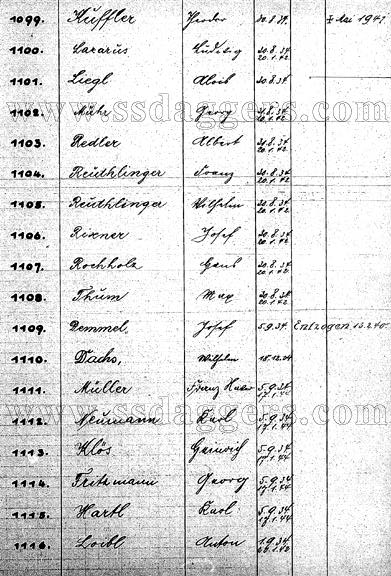 1099. Kuffler Theodor 20.8.34. ‡ Mai 1941
1100. Lazarus Ludwig 20.8.34 20.1.42
1101. Liegl Alois 20.8.34
www.ssdaggers.com
1102. Mühr Georg 20.8.34 20.1.42
1103. Redler Albert 20.8.34 20.1.42
1104. Reuthlinger Franz 20.8.34 20.1.42
1105. Reuthlinger Wilhelm 20.8.34 20.1.42
1106. Rixner Josef 20.8.34 20.1.42
1107. Rochholz Hans 20.8.34 20.1.42
1108. Thum Max 20.8.34 20.1.42
1109. Demmel, Josef 5.9.34. Entzogen 13.2.40.
1110. Dachs, Wilhelm 15.12.34
1111. Müller Franz 5.9.34 17.1.44
www.ssdaggers.com
1112. Neumann Karl 5.9.34 17.1.44
1113. Klös Heinrich 5.9.34 17.1.44
1114. Fritzmann Georg 5.9.34 17.1.44
1115. Hartl Karl 5.9.34 17.1.44
1116. Loibl Anton 1.9.34